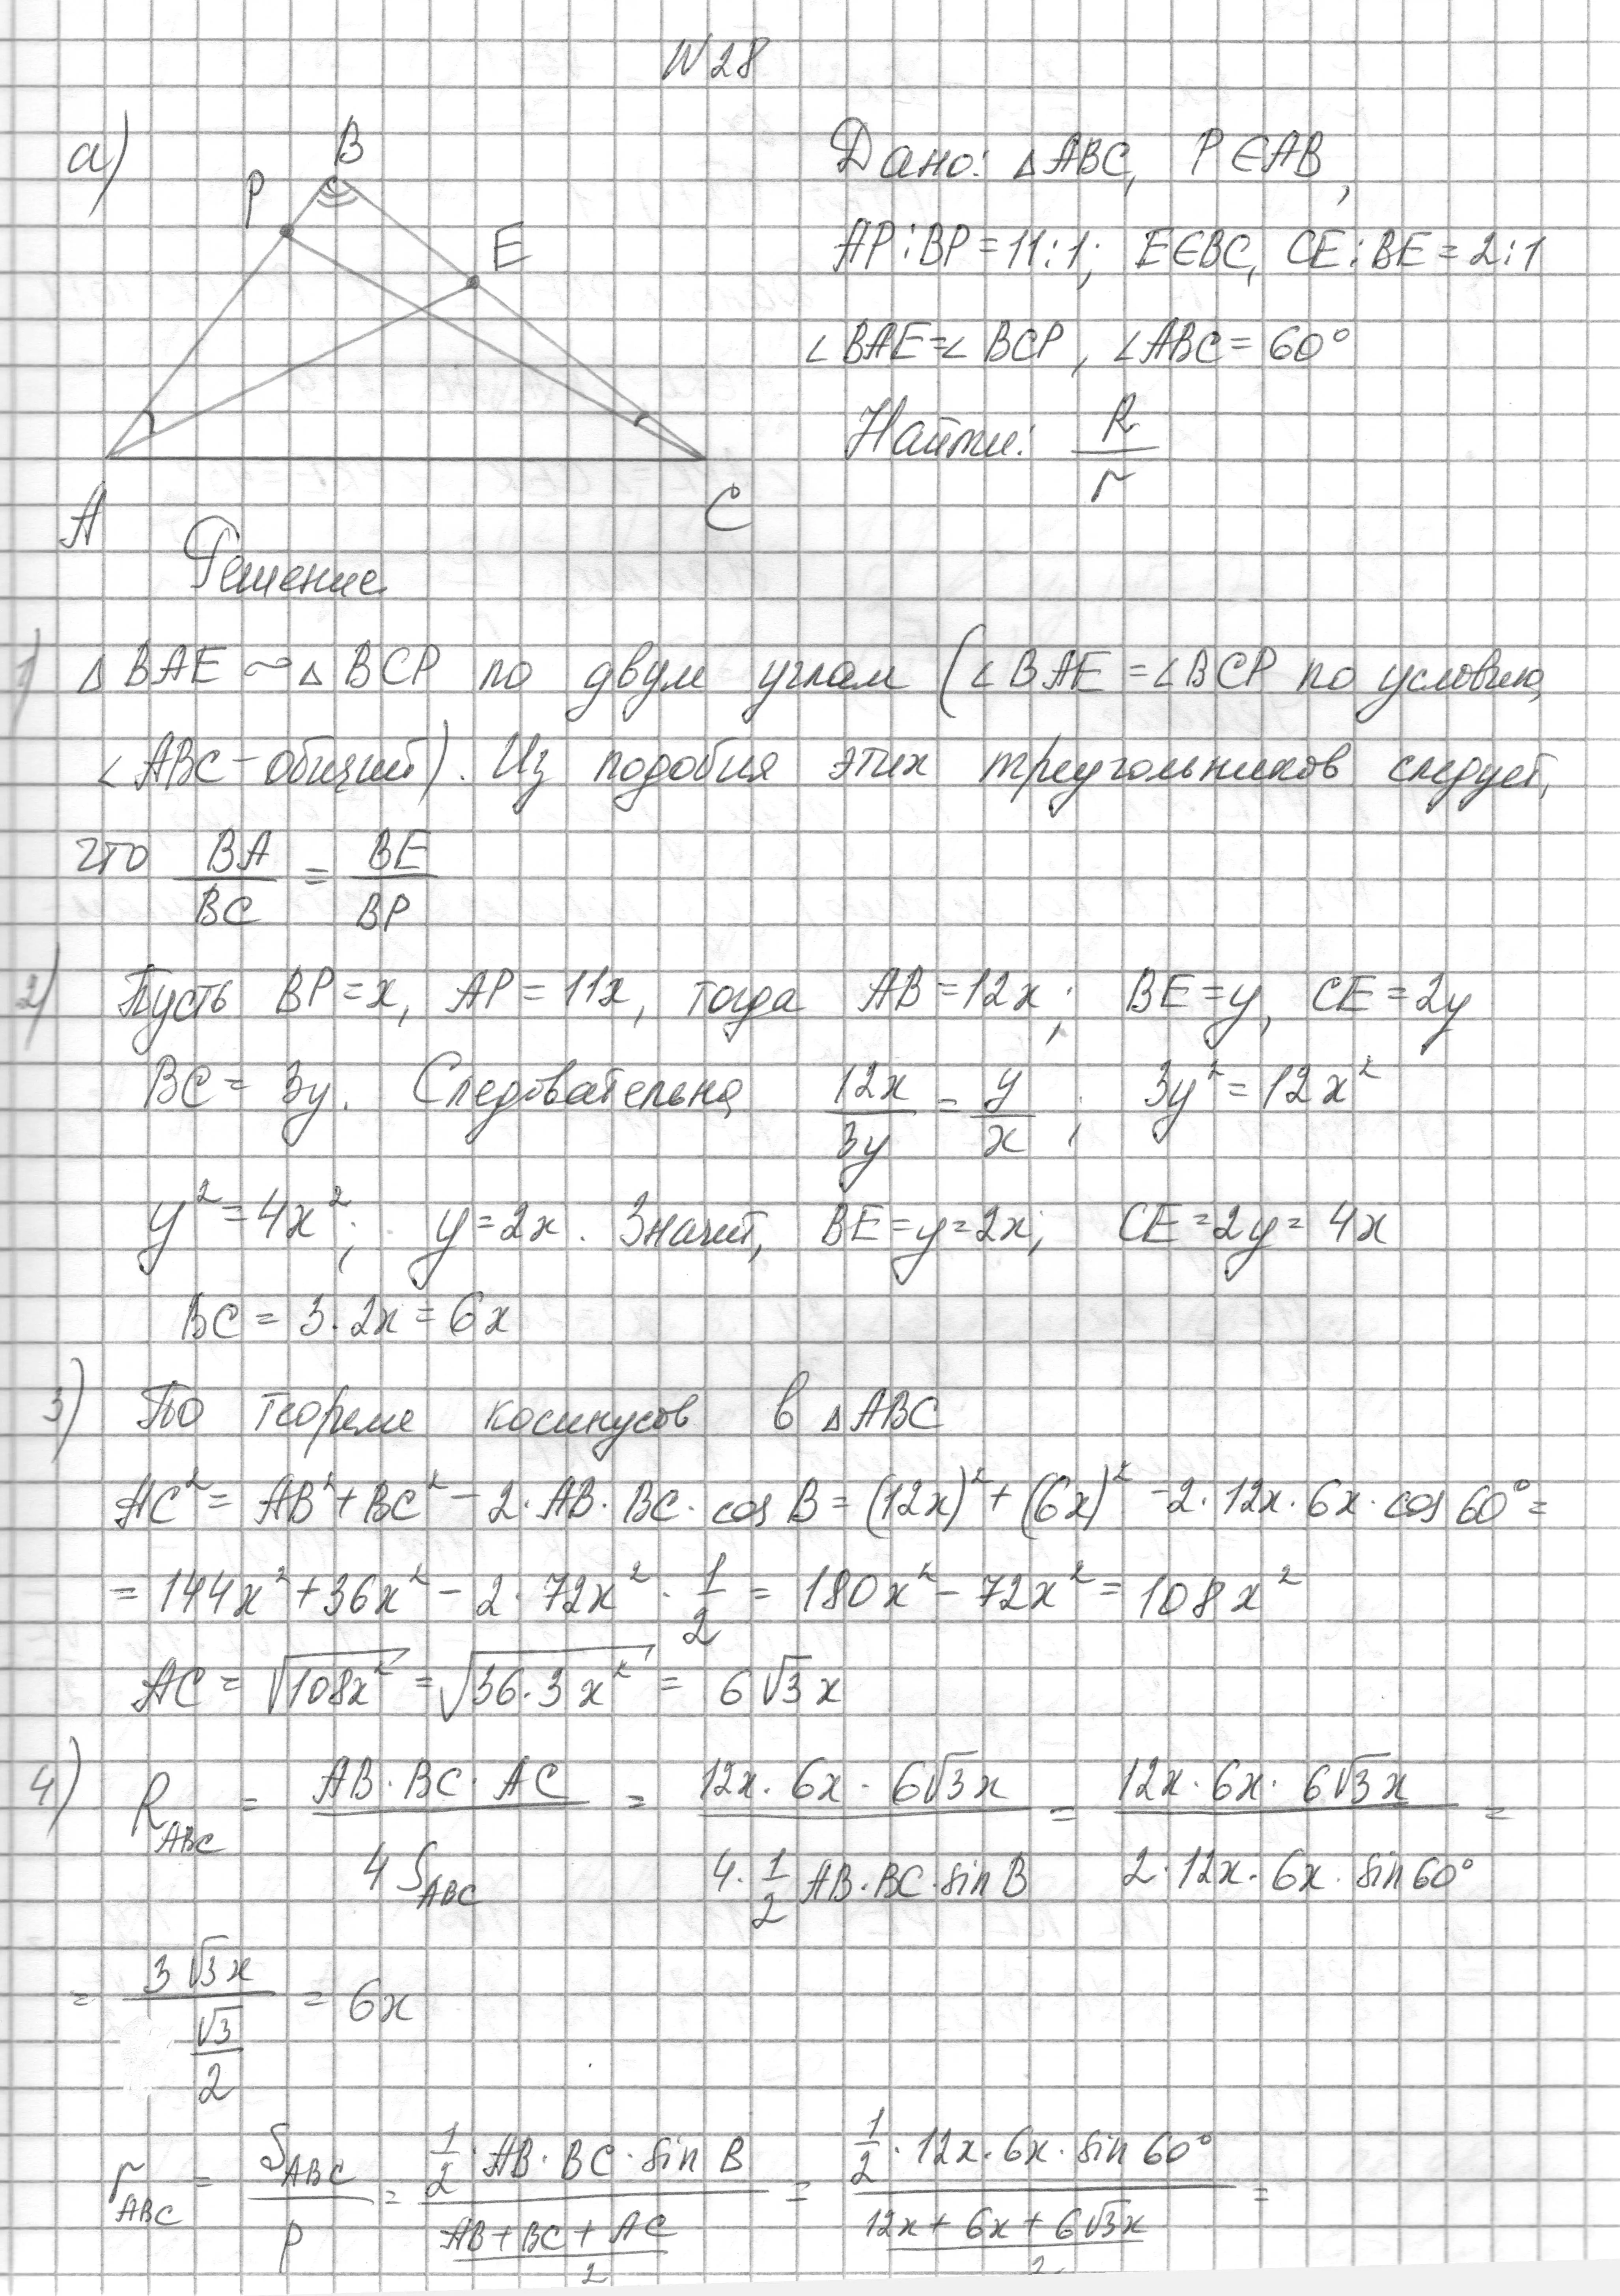 N28
а)
B
P
E
A
C
Дано: △ABC, P∈AB,
AP:BP=11:1; E∈BC, CE:BE=2:1
∠BAE=∠BCP, ∠ABC=60°
Найти: R/r
Решение
1) △BAE ∾ △BCP по двум углам (∠BAE=∠BCP по условию,
∠ABC-общий). Из подобия этих треугольников следует,
что BA/BC = BE/BP
2) Пусть BP=x, AP=11x, тогда AB=12x; BE=y, CE=2y
BC=3y. Следовательно, 12x/3y = y/x; 3y²=12x²
y²=4x²; y=2x. Значит, BE=y=2x; CE=2y=4x
BC=3·2x=6x
3) По теореме косинусов в △ABC
AC²=AB²+BC²-2·AB·BC·cos B=(12x)²+(6x)²-2·12x·6x·cos 60°=
=144x²+36x²-2·72x²·1/2=180x²-72x²=108x²
AC=√108x²=√36·3x²=6√3x
4) R_ABC = AB·BC·AC / 4S_ABC = 12x·6x·6√3x / 4·1/2 AB·BC·sin B = 12x·6x·6√3x / 2·12x·6x·sin 60° =
= 3√3x / (√3/2) = 6x
r_ABC = S_ABC / p = 1/2·AB·BC·sin B / ((AB+BC+AC)/2) = 1/2·12x·6x·sin 60° / ((12x+6x+6√3x)/2) =